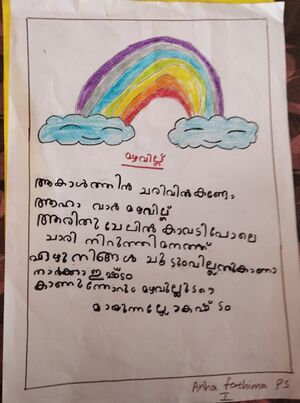 മഴവില്ല്
ആകാശത്തിൻ ചരിവിൻകണ്ടോ
ആഹാ വാർ മഴവില്ല്
അരിതു ചേലിൻ കാവടിപോലെ
ചാരി നിറുത്തിമനത്ത്
ഏഴുനിങ്ങൾ ചൂടുംവില്ലിനുകാണാ
നാർക്കാഇഷ്ടം
കാണുന്നോനും മഴവില്ലുടനെ
മായുന്നല്ലോകഷ്ടം
Anha fathima PS
I